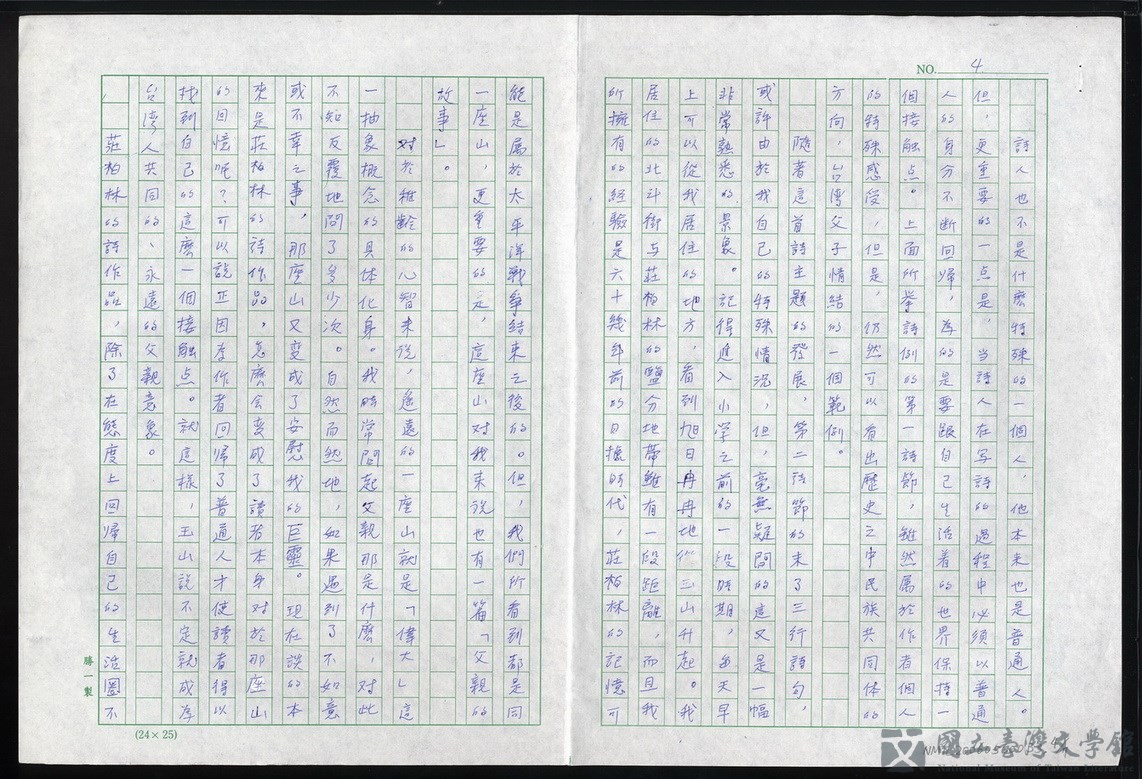 NO. 4.
詩人也不是什麼特殊的一個人。他本来也是普通人。
但，更重要的一点是，当詩人在写詩的過程中必須以普通
人的身分不断回帰，為的是要跟自己生活着的世界保持一
個接触点。上面所挙詩例的第一詩節，雖然属於作者個人
的特殊感受，但是，仍然可以看出歷史之中民族共同体的
方向，台湾父子情結的一個範例。
随着這首詩主題的発展，第二詩節的末了三行詩句，
或許由於我自己的特殊情況，但，毫無疑問的這又是一幅
非常熟悉的景象。記得進入小学之前的一段時期，每天早
上可以從我居住的地方，看到旭日冉冉地從玉山升起。我
居住的北斗街与莊柏林的鹽分地帯雖有一段距離，而且我
所擁有的経験是六十幾年前的日據時代，莊柏林的記憶可
能是属於太平洋戦争結束之後的。但，我們所看到都是同
一座山，更重要的是，這座山对我来説也有一篇「父親的
故事」。
对於稚齡的心智来說，遙遠的一座山就是「偉大」這
一抽象概念的具体化身。我時常問起父親那是什麼，对此
不知反覆地問了多少次。自然而然地，如果遇到了不如意
或不幸之事，那座山又変成了安慰我的巨靈。現在談的本
來是莊柏林的詩作品，怎麼会変成了讀者本身对於那座山
的回憶呢？可以說正因為作者回帰了普通人才使讀者得以
找到自己的這麼一個接触点。就這樣，玉山說不定就成為
台湾人共同的、永遠的父親意象。
莊柏林的詩作品，除了在態度上回帰自己的生活圏不
勝一製
(24×25)
國立臺灣文學館
National Museum of Taiwan Literature